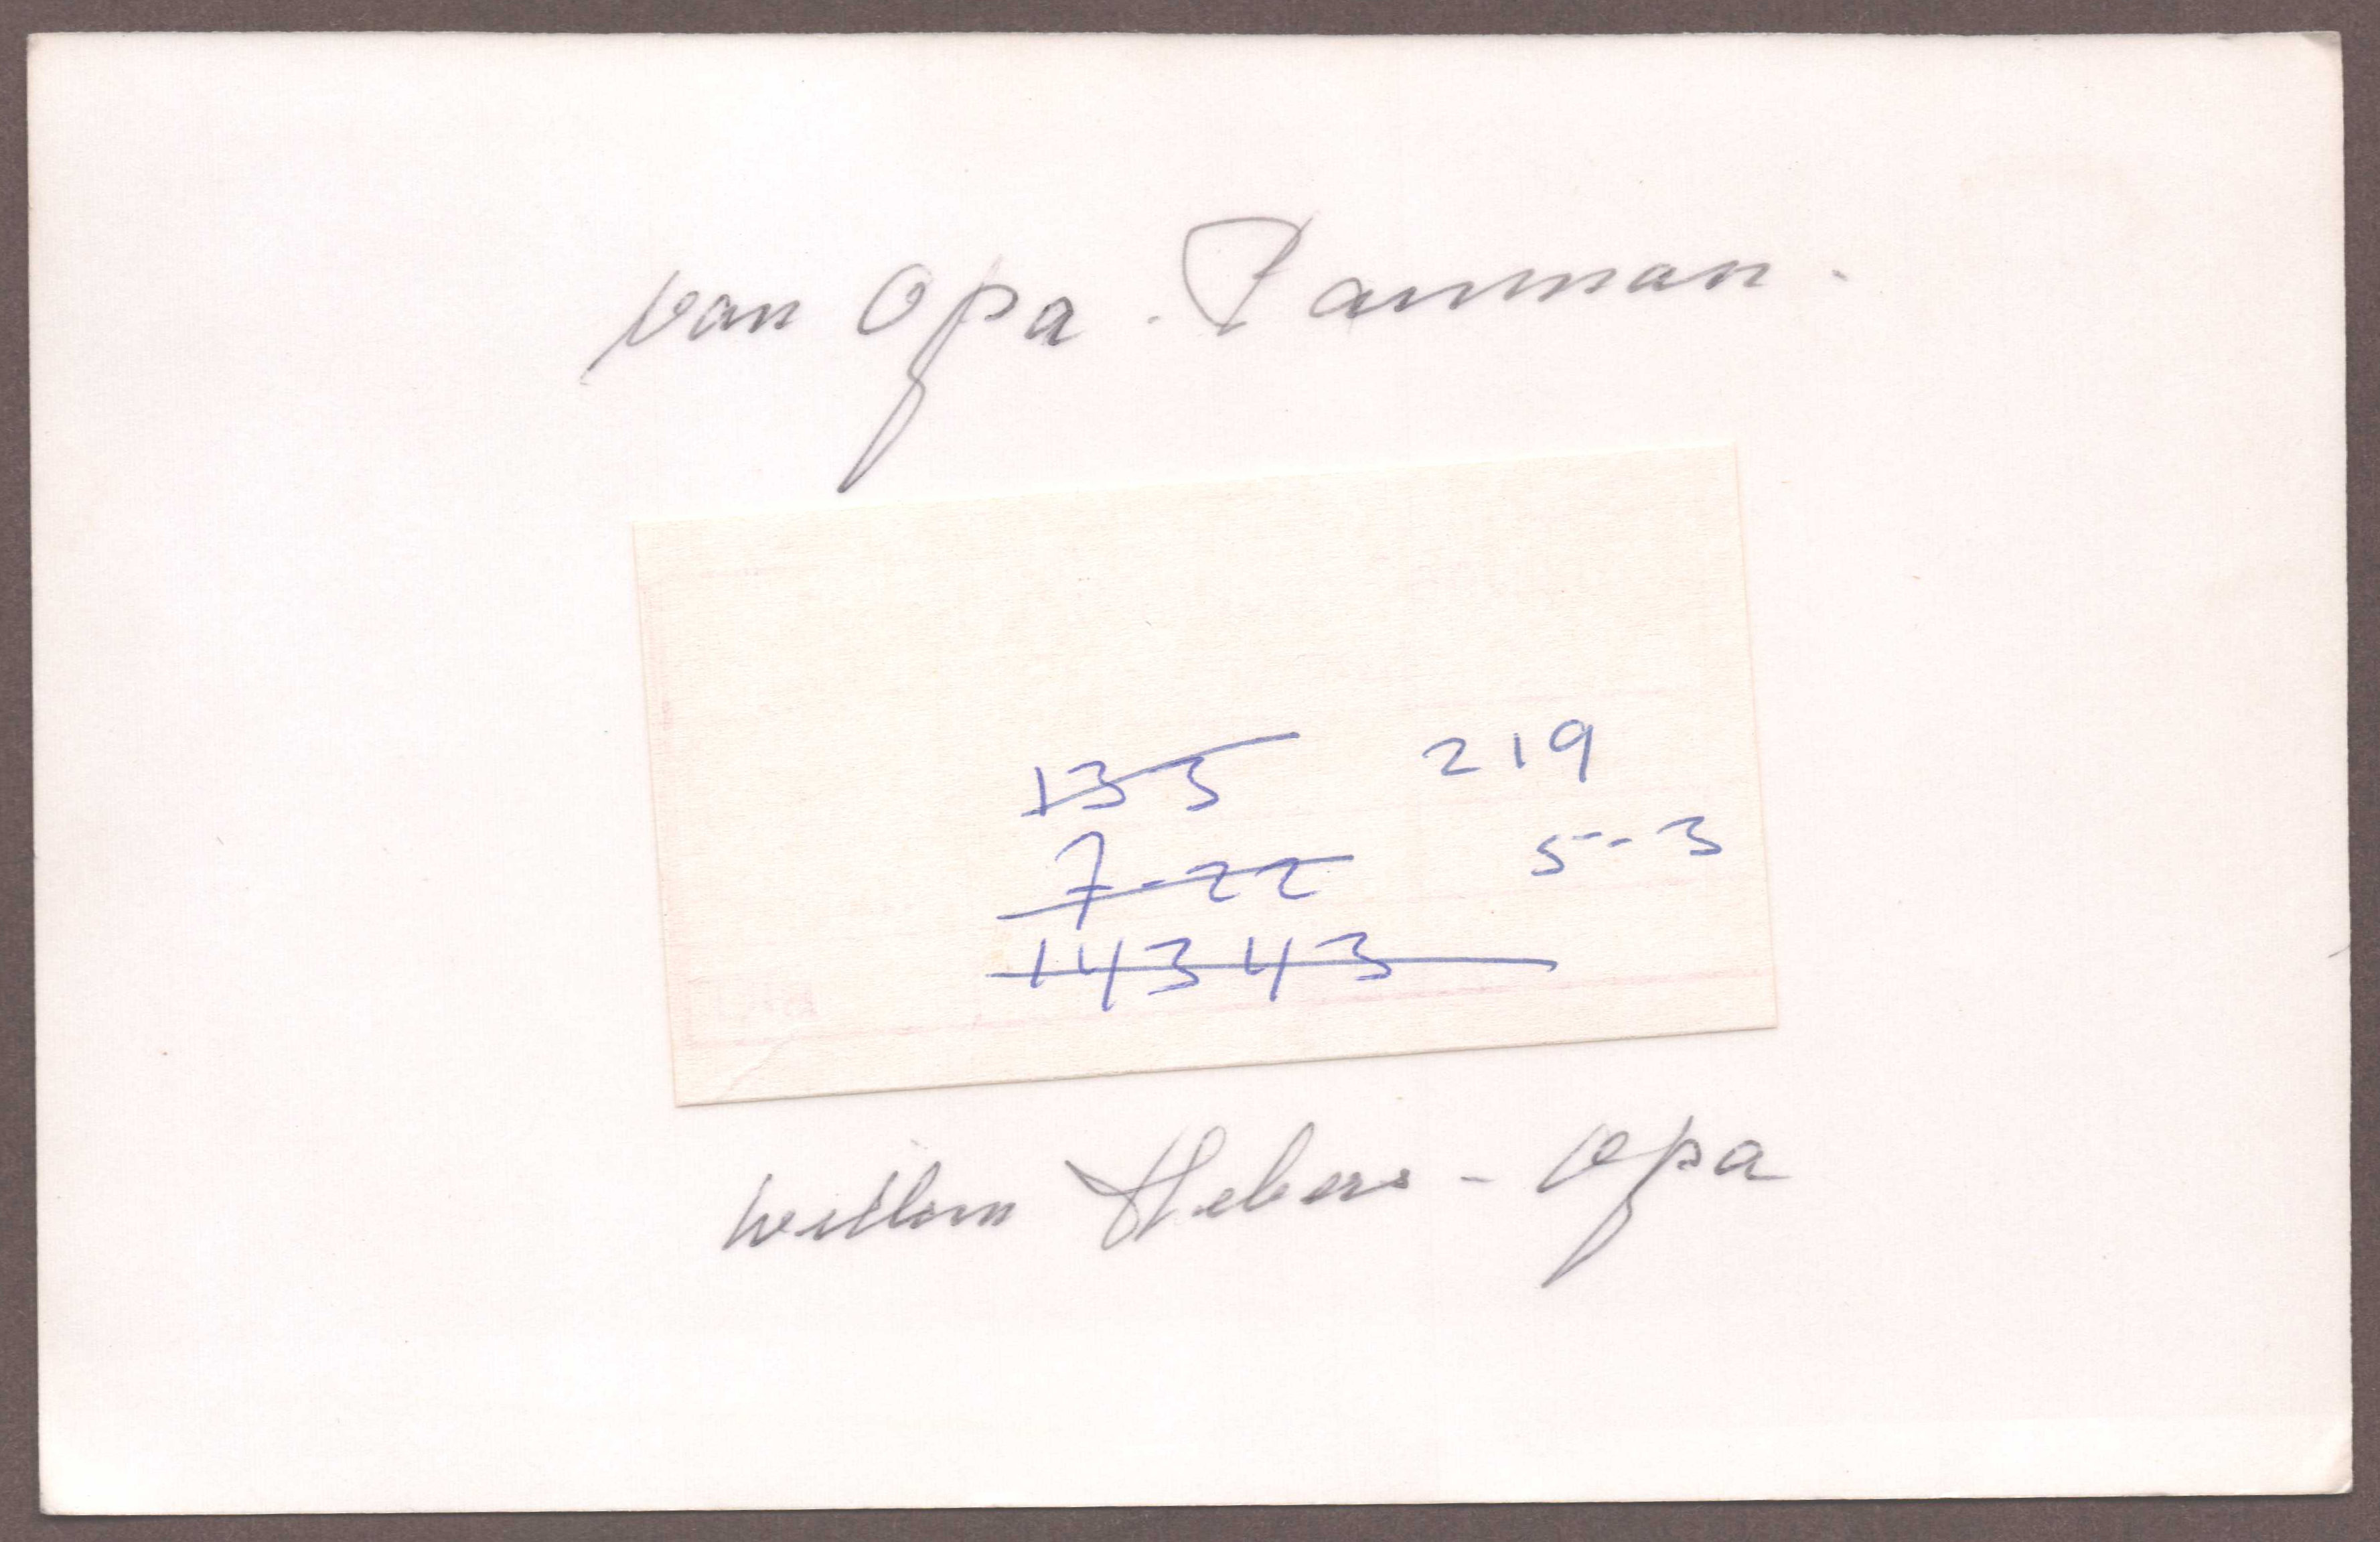 van Opa.
133 219
7-22 5-3
14343
Willem Hebers - Opa